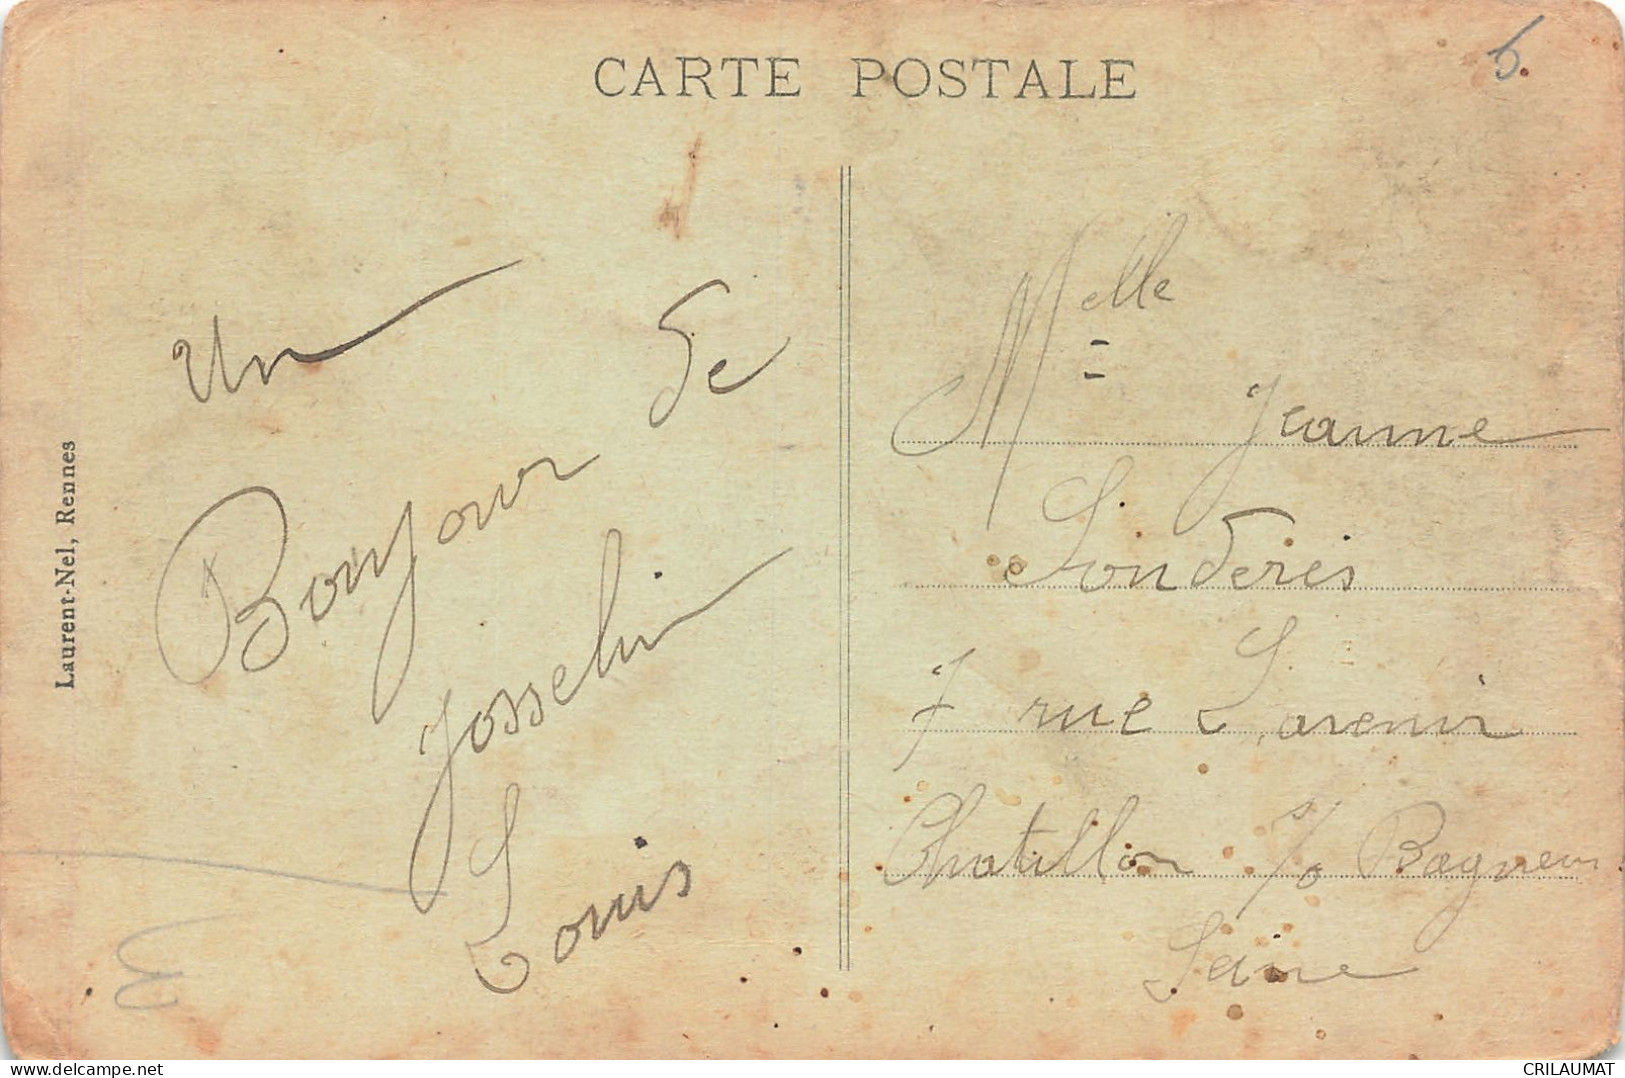 CARTE POSTALE
6
Un
Bonjour de
Josselin
Louis
Laurent-Nel, Rennes
Melle Jeanne
7 rue L'avenir
Chatillon s/s Bagneux
Seine
delcampe.net
CRILAUMAT